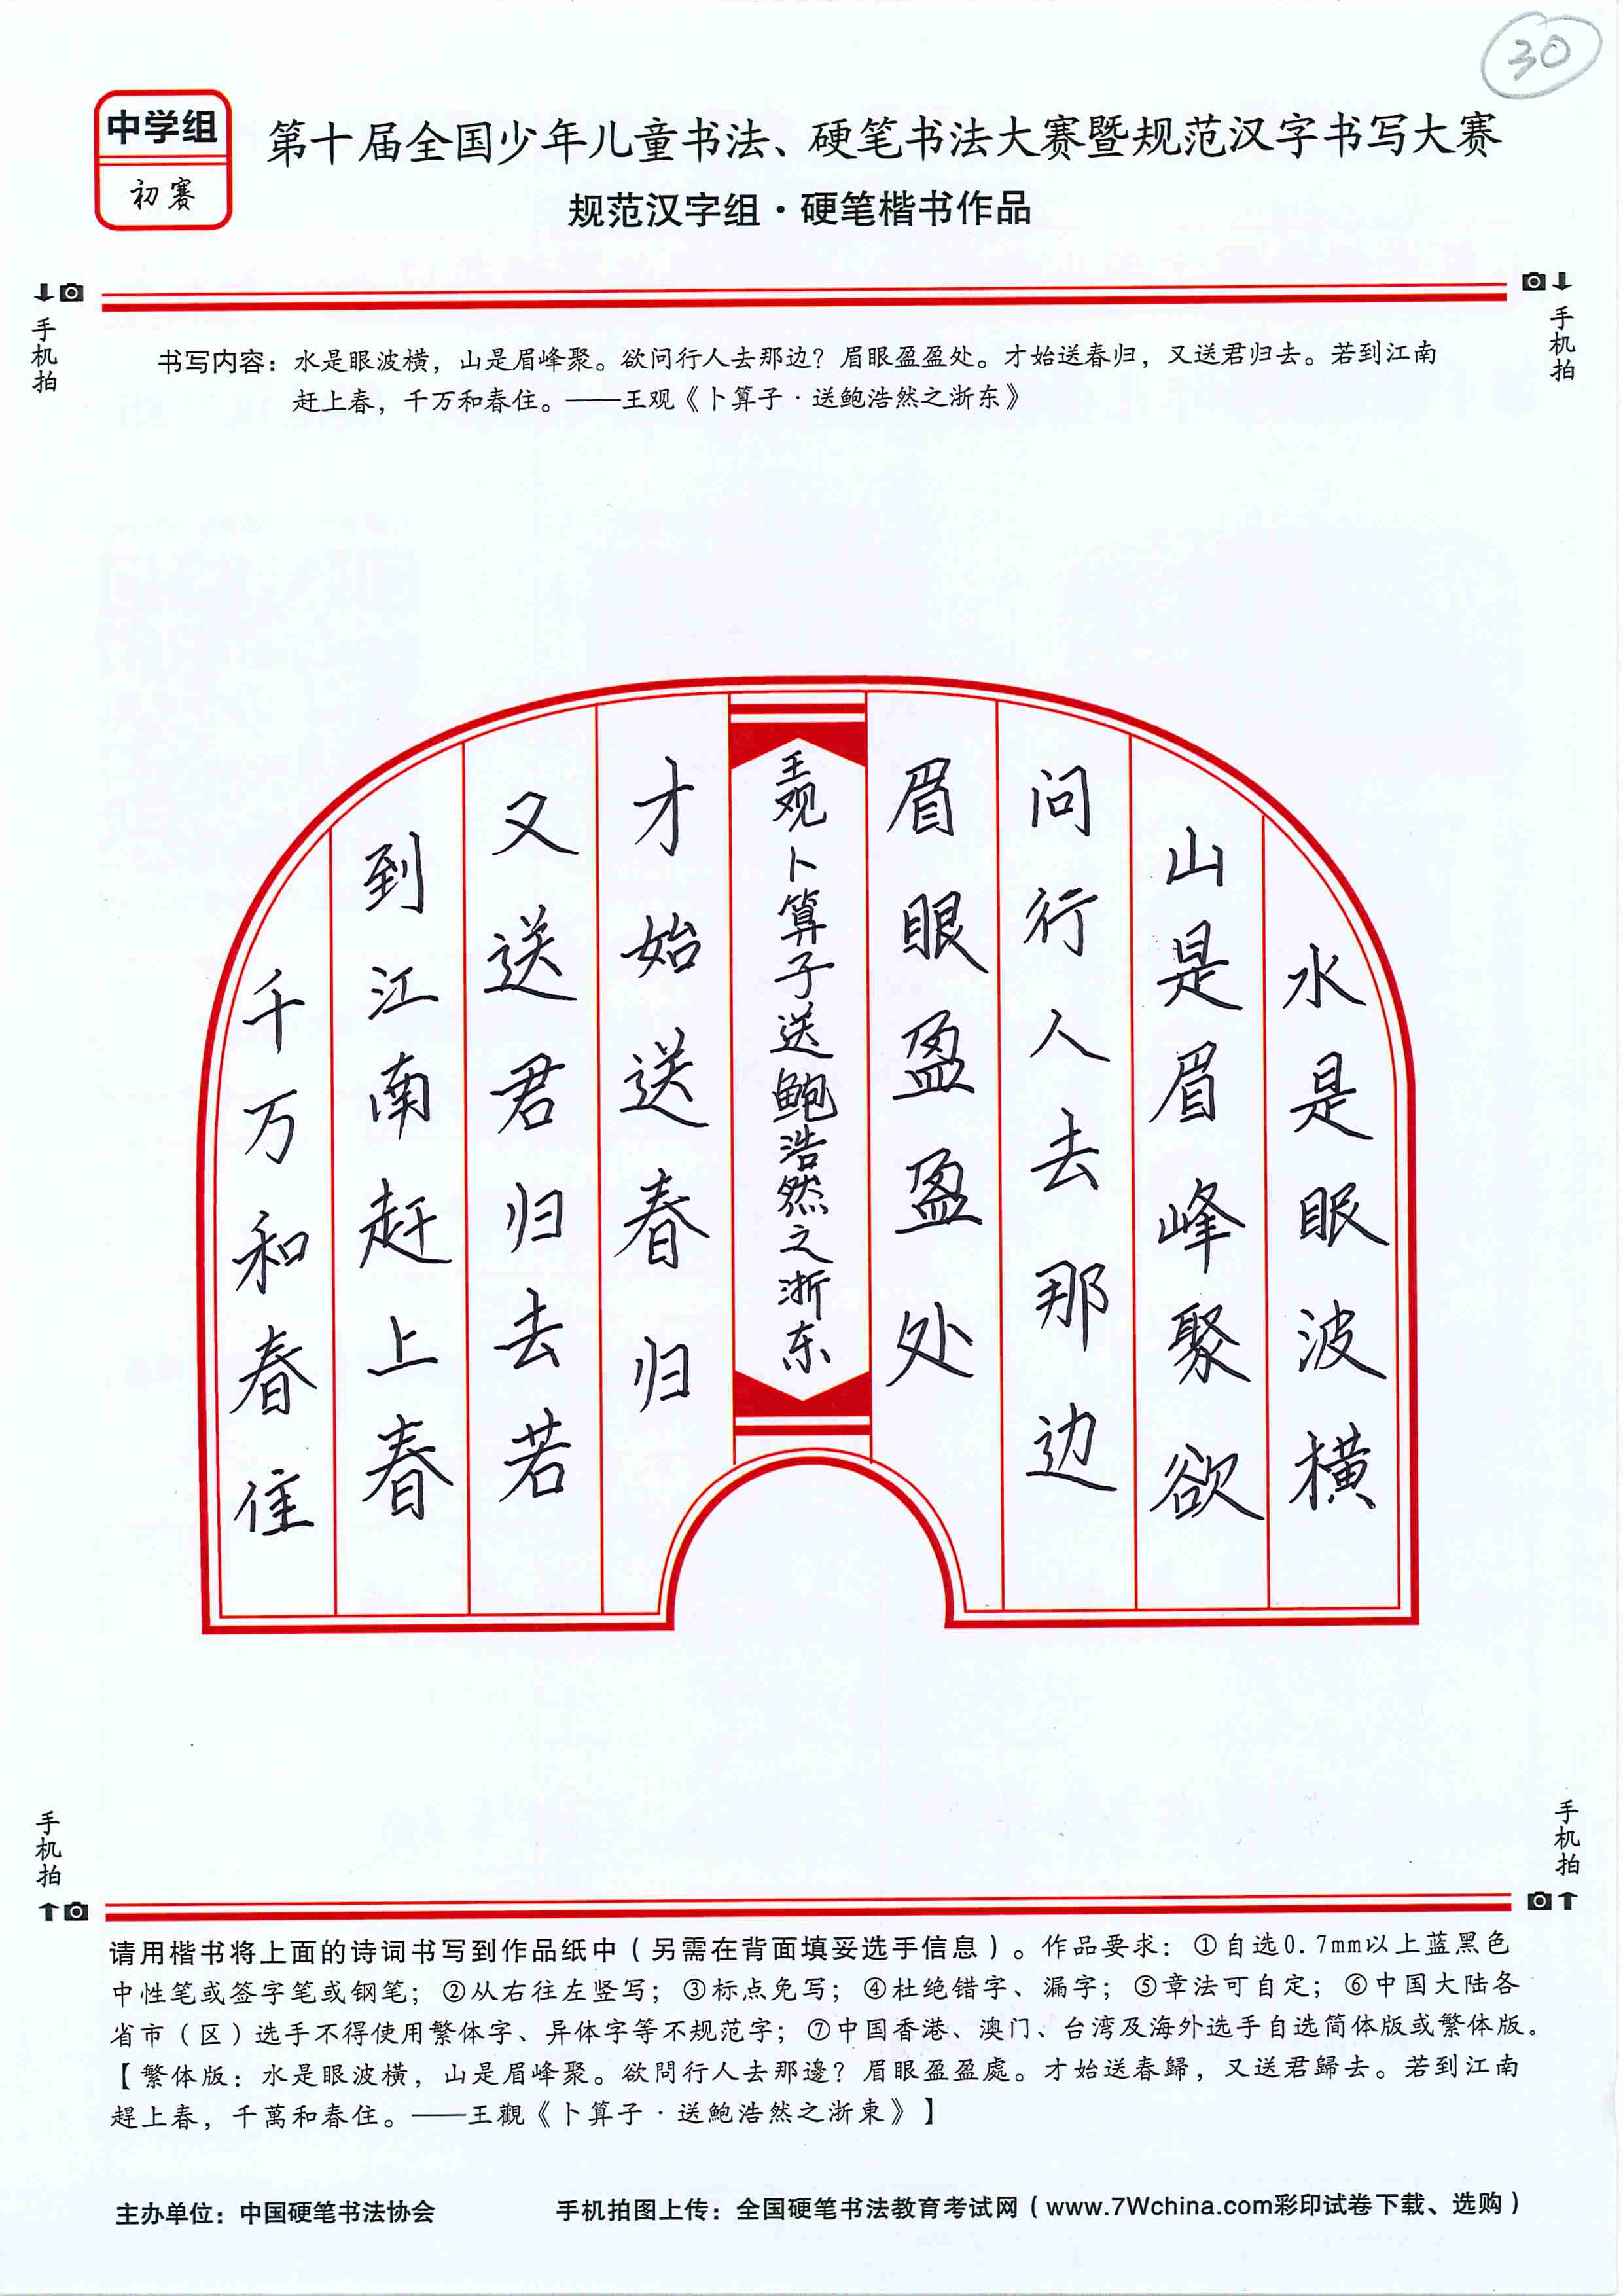 30
中学组
初赛
第十届全国少年儿童书法、硬笔书法大赛暨规范汉字书写大赛
规范汉字组·硬笔楷书作品
手机拍
手机拍
书写内容：水是眼波横，山是眉峰聚。欲问行人去那边？眉眼盈盈处。才始送春归，又送君归去。若到江南
赶上春，千万和春住。——王观《卜算子·送鲍浩然之浙东》
水是眼波横
山是眉峰聚欲
问行人去那边
眉眼盈盈处
王观卜算子送鲍浩然之浙东
才始送春归
又送君归去若
到江南赶上春
千万和春住
手机拍
手机拍
请用楷书将上面的诗词书写到作品纸中（另需在背面填妥选手信息）。作品要求：①自选0.7mm以上蓝黑色
中性笔或签字笔或钢笔；②从右往左竖写；③标点免写；④杜绝错字、漏字；⑤章法可自定；⑥中国大陆各
省市（区）选手不得使用繁体字、异体字等不规范字；⑦中国香港、澳门、台湾及海外选手自选简体版或繁体版。
【繁体版：水是眼波橫，山是眉峰聚。欲問行人去那邊？眉眼盈盈處。才始送春歸，又送君歸去。若到江南
趕上春，千萬和春住。——王觀《卜算子·送鮑浩然之浙東》】
主办单位：中国硬笔书法协会
手机拍图上传：全国硬笔书法教育考试网（www.7Wchina.com彩印试卷下载、选购）